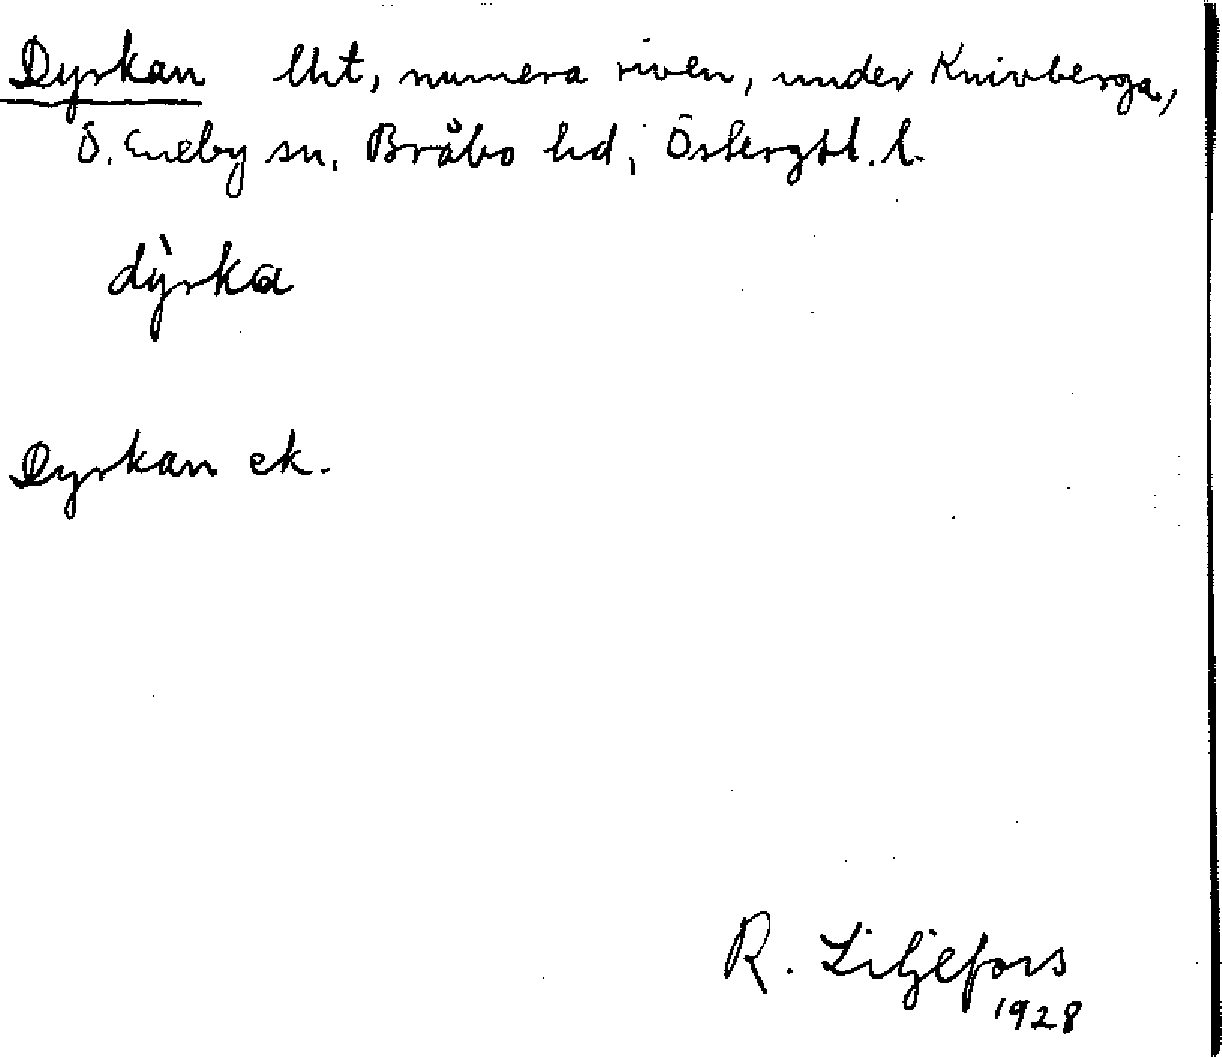 Dyrkan lht, numera riven, under Knivberga,
Ö. Eneby sn, Bråbo hd, Östergtl. l.
dỳrka
Dyrkan ek.
R. Liljefors
1928